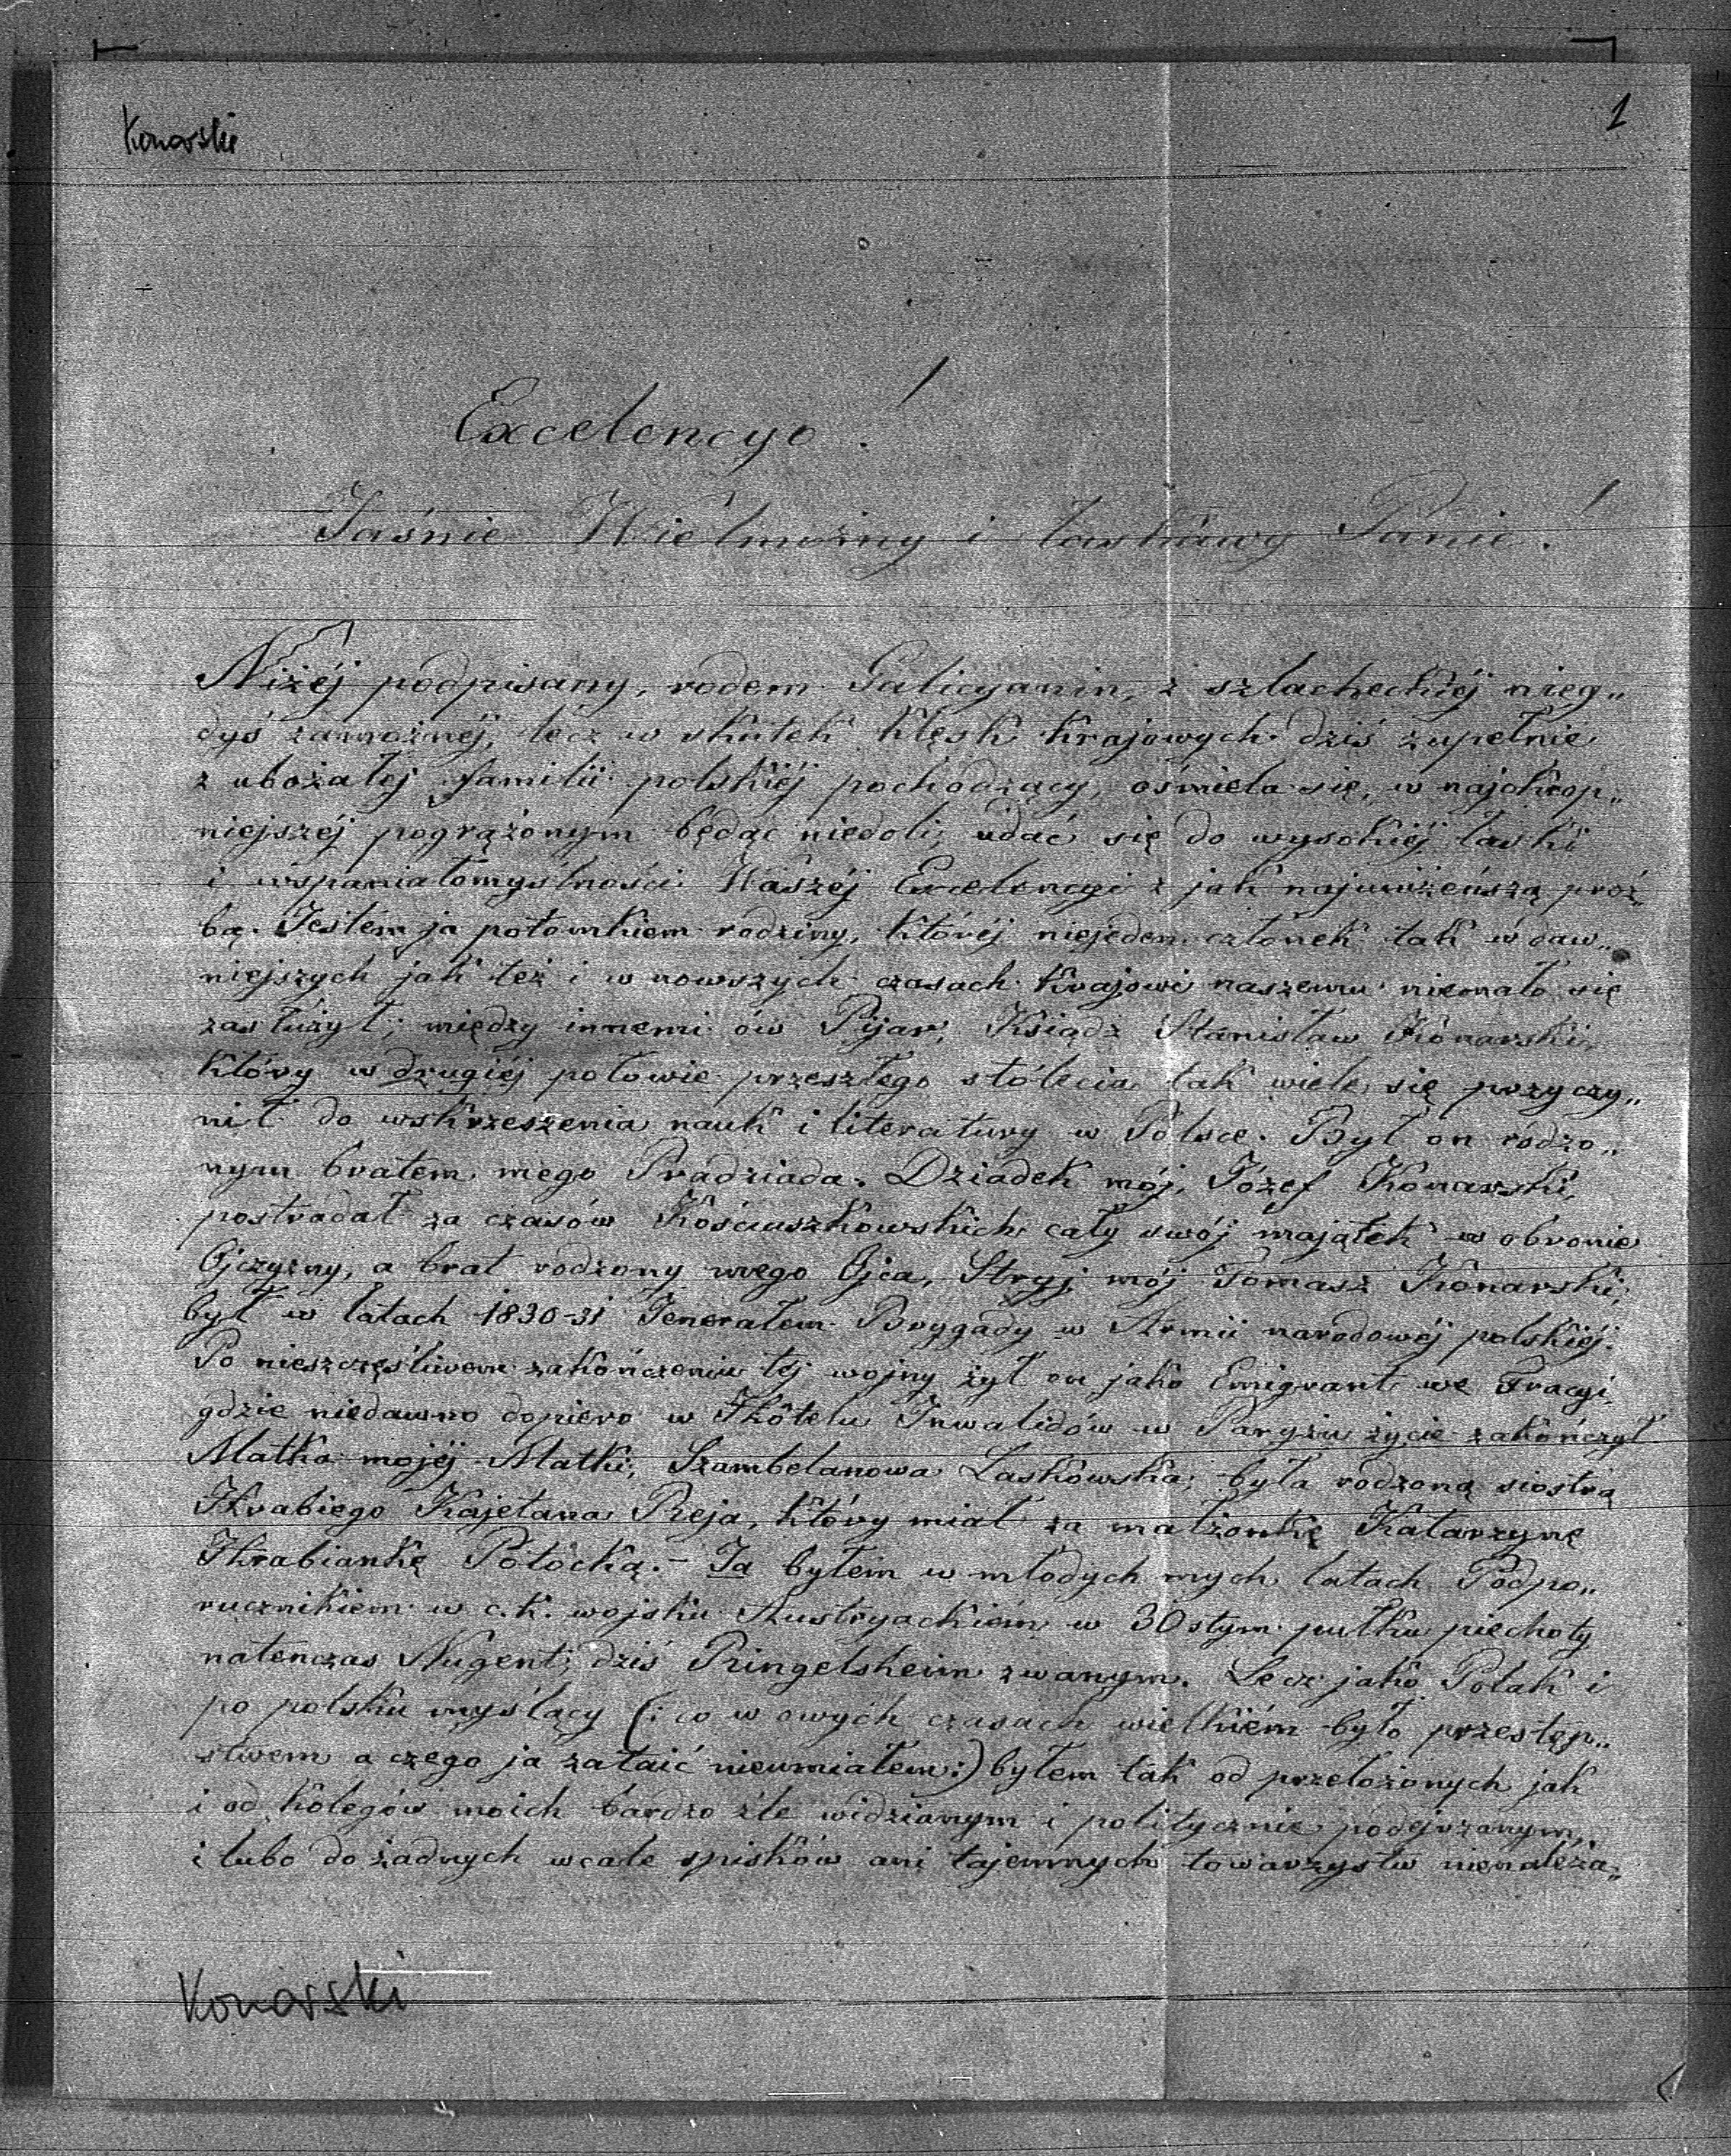 Konarski
1
Excelencyo!
Jaśnie Wielmożny i łaskawy Panie!
Niżéj podpisany, rodem Galicyanin, z szlacheckiéj nieg„
dyś zamożnéj, lecz w skutek klęsk krajowych dziś zupełnie
z ubożałej familii polskiéj pochodzący, ośmiela się, w najokrop„
niejszéj pogrążonym będąc niedoli, udać się do wysokiéj łaski
i wspaniałomyślności Waszéj Excelencyi z jak najuniżeńszą proź„
bą. Jestem ja potomkiem rodziny, któréj niejeden członek tak w daw„
niejszych jak też i w nowszych czasach Krajowi naszemu niemało się
zasłużył; między innemi ów Pijar, Ksiądz Stanisław Konarski,
który w drugiéj połowie przeszłego stólecia tak wiele się przyczy„
nił do wskrzeszenia nauk i literatury w Polsce. Był on rodzo„
nym bratem mego Pradziada. Dziadek mój, Józef Konarski,
postradał za czasów Kościuszkowskich cały swój majątek w obronie
Ojczyzny, a brat rodzony mego Ojca, Stryj mój Tomasz Konarski,
był w latach 1830-31 Jenerałem Brygady w Armii narodowéj polskiéj.
Po nieszczęśliwem zakończeniu téj wojny żył on jako Emigrant we Fracyi,
gdzie niedawno dopiero w Hôtelu Inwalidów w Paryżu życie zakończył
Matka mojéj Matki, Szambelanowa Laskowska, była rodzoną siostrą
Hrabiego Kajetana Reja, który miał za małżonkę Katarzynę
Hrabiankę Potocką.- Ja byłem w młodych mych latach Podpo„
rucznikiem w c.k. wojsku Austryackiém w 30stym pułku piechoty
natenczas Nugent, dziś Ringelsheim zwanym. Lecz jako Polak i
po polsku myślący (: co w owych czasach wielkiém było przestęp„
stwem a czego ja zataić nieumiałem:) byłem tak od przełożonych jak
i od kolegów moich bardzo źle widzianym i politycznie podejrzanym,
i lubo do żadnych wcale spisków ani tajemnych towarzystw nienależa„
Konarski